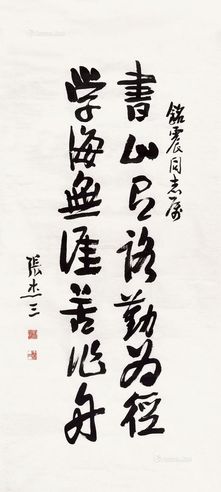 銘震同志属
書山有路勤為徑
学海無涯苦作舟
張杰三